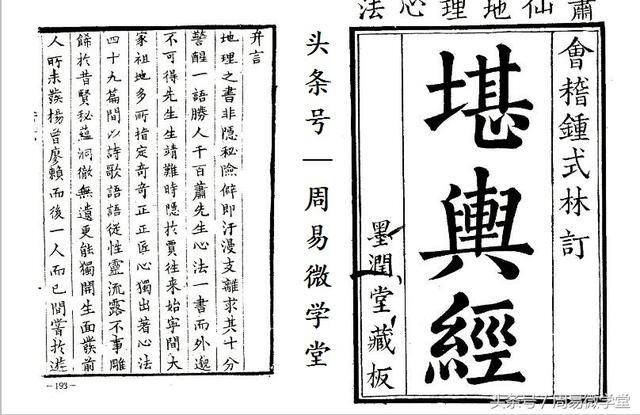 蕭仙地理心法
會稽鍾式林訂
堪輿經
墨潤堂藏板
头条号—周易微学堂
弁言
地理之書非隱秘險僻即汗漫支離求其十分
警醒一語勝人千百蕭先生心法一書而外邈
不可得先生生靖難時隱於賈往来始寧間大
家祖地多所指定奇奇正正匠心獨出著心法
四十九篇間以詩歌語語從性靈流露不事雕
餙於昔賢秘蘊洞徹無遺更能獨開生面發前
人所未發楊曾廖賴而後一人而已間嘗於遊
-193-
头条号 / 周易微学堂